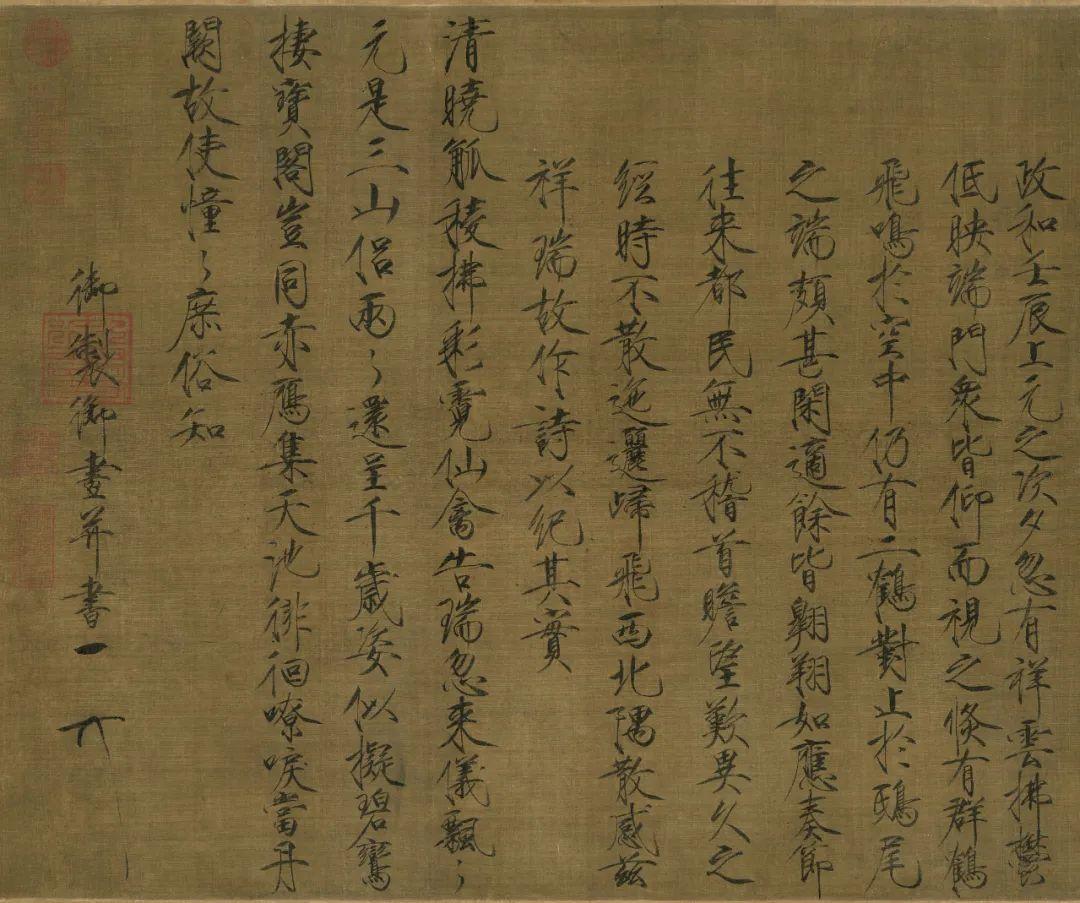 政和壬辰上元之次夕忽有祥雲拂鬱
低映端門衆皆仰而視之倐有群鶴
飛鳴於空中仍有二鶴對止於鴟尾
之端頗甚閑適餘皆翱翔如應奏節
往來都民無不稽首瞻望歎異久之
經時不散迤邐歸飛西北隅散感兹
祥瑞故作詩以紀其實
清曉觚稜拂彩霓仙禽告瑞忽來儀飄〻
元是三山侣兩〻還呈千歲姿似擬碧鸞
棲寶閣豈同赤鴈集天池徘徊嘹唳當丹
闕故使憧〻庶俗知
御製御畫并書